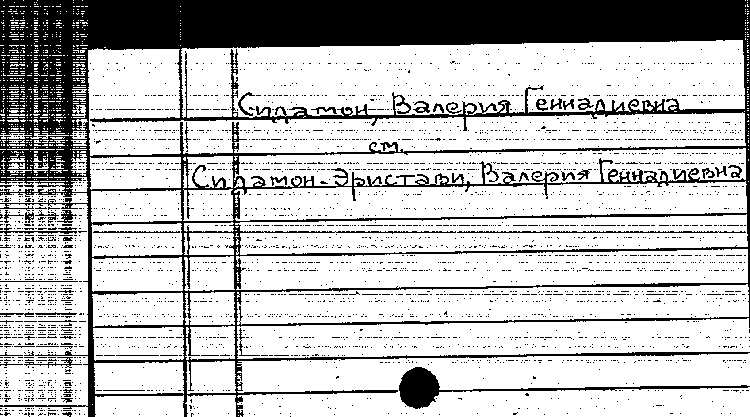 Сидамон, Валерия Геннадиевна
см.
Сидамон-Эристави, Валерия Геннадиевна